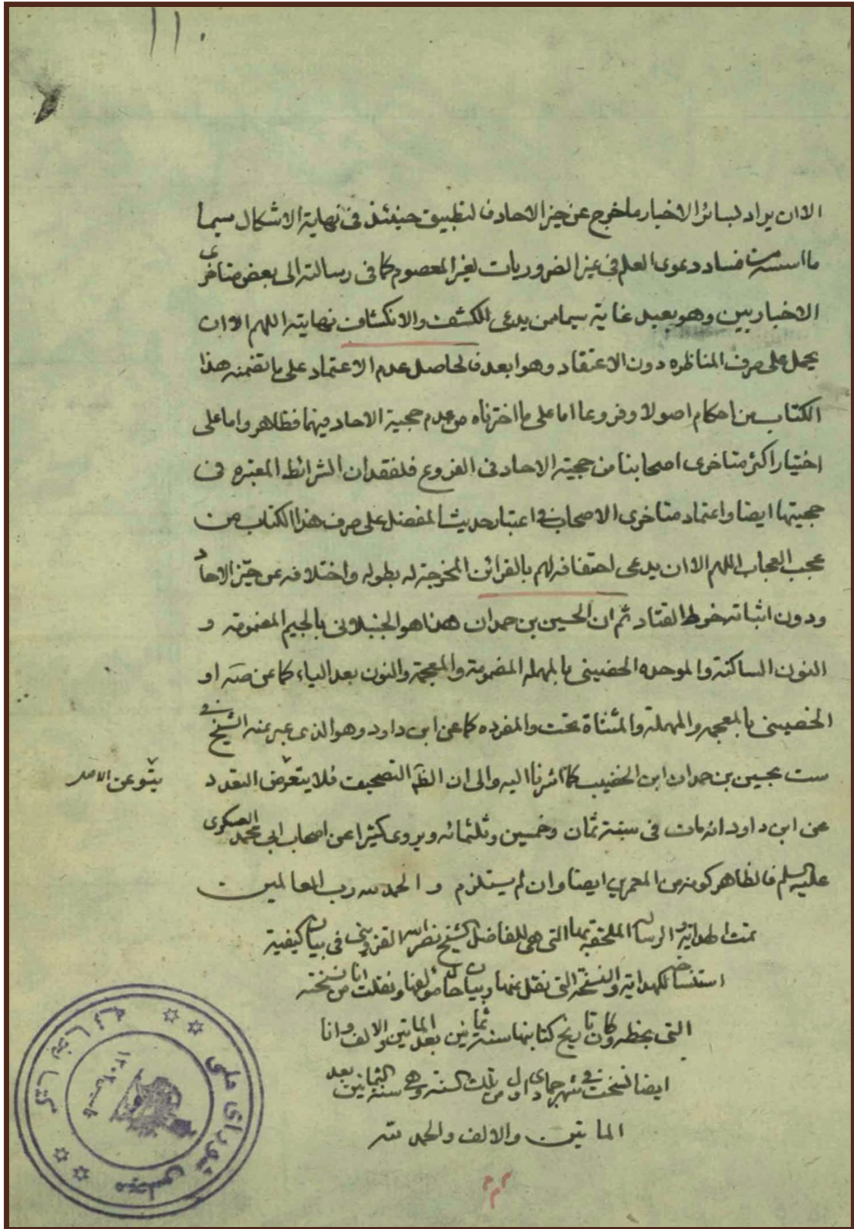 ١١٠
الا ان يراد بسائر الاخبار ما خرج عن حيز الاحاد فالتطبيق حينئذ فى نهاية الاشكال سيما
ما اسسه من فساد دعوى العلم فى غير الضروريات لغير المعصوم كما فى رسالته الى بعض متاخرى
الاخباريين وهو بعيد غاية سيما من يدعى الكشف والانكشاف نهايته اللهم الا ان
يحمل على صرف المناظره دون الاعتقاد وهو ابعد فالحاصل عدم الاعتماد على ما تضمنه هذا
الكتاب من احكام اصولا وفروعا اما على ما اخترناه من عدم حجية الاحاد فيهما فظاهر واما على
اختيار اكثر متاخرى اصحابنا من حجية الاحاد فى الفروع فلفقدان الشرائط المعتبره فى
حجيتها ايضا واعتماد متاخرى الاصحاب فى اعتبار حديث المفضل على صرف هذا الكتاب من
عجب العجاب اللهم الا ان يدعى احتفافه لهم بالقرائن المخرجة له بطوله واختلافه عن حيز الاحاد
ودون اثباته خرط القتاد ثم ان الحسين بن حمدان هذا هو الجنبلانى بالجيم المضمومة و
النون الساكنة والموحده الحضينى بالمهملة المضمومة والمعجمة والنون بعد الياء كما عن صه او
الخصيبى بالمعجمه والمهملة والمثناة تحت والمفرده كما عن ابن داود وهو الذى عبر عنه الشيخ فى
ست بحسين بن حمدان ابن الخضيب كما اشرنا اليه والى ان الظم التصحيف فلا يتعرض التعدد
عن ابن داود انه مات فى سنة ثمان وخمسين وثلثمائه ويروى كثيرا عن اصحاب ابى محمد العسكرى
عليه السلم فالظاهر كونه من المعمرين ايضا وان لم يستلزم والحمد لله رب العالمين
تمت الهداية والرسالة الملحقة بها التى هى للفاضل الشيخ نصر الله القزوينى فى بيان كيفية
استنساخ الهداية والنسخة التى نقل عنها وبيان حال مؤلفها ونقلت انا من نسخته
التى بخطه وكان تاريخ كتابتها سنة ثمانين بعد الماتين والالف وانا
ايضا نسخت فى شهر جمادى الاول من تلك السنة وهى سنة الثمانين بعد
الماتين والالف والحمد لله